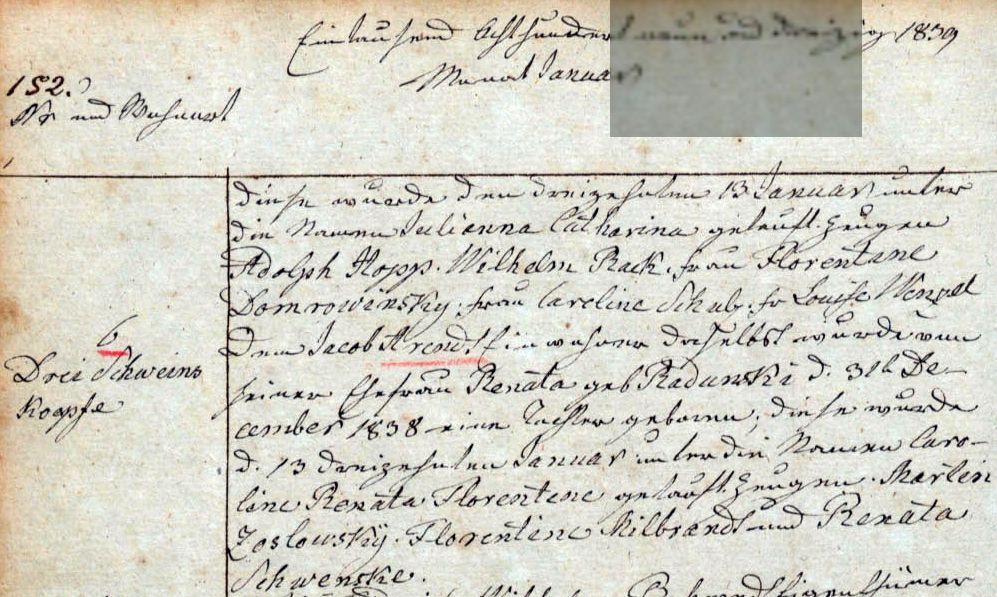 Eintausend Achthundert neun und dreizig 1839
Monat Januar
152.
Nr und Wohnort
diese wurde den dreizehnten 13 Januar unter
die Namen Julianna Catharina getauft. Zeugen
Adolph Hopp. Wilhelm Rack. frau Florentine
Domrowinsky. frau Careline Schulz. fr Louise Wenzel
6
Drei Schweins
Koepfe
Dem Jacob Arendt Einwohner daselbst wurde von
seiner Ehefrau Renata geb Radunski d. 31t De-
cember 1838 eine Tochter geboren, diese wurde
d. 13 dreizehnten Januar unter die Namen Caro-
line Renata Florentene getauft. Zeugen. Martin
Zoslowskÿ. Florentine Milbrandt und Renata
Schwenske.
Wilhelm Behrendt Eigenthümer